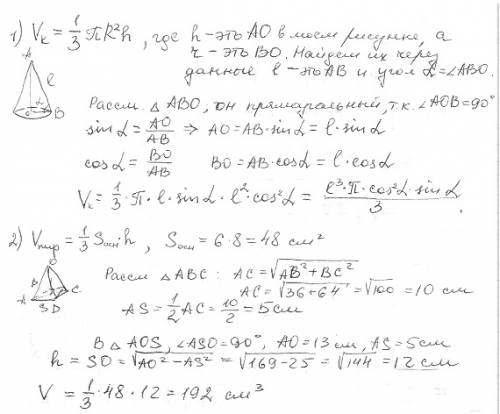 1) Vк = 1/3 πR²h, где h - это AO в моем рисунке, а
r - это BO. Найдем их через
данные l - это AB и угол α = ∠ABO.
A
l
α
O
B
Рассм. △ ABO, он прямоугальный, т.к. ∠AOB = 90°
sin α = AO/AB ⇒ AO = AB · sin α = l · sin α
cos α = BO/AB BO = AB · cos α = l · cos α
Vк = 1/3 · π · l · sin α · l² · cos² α = l³ · π · cos² α · sin α / 3.
2) Vпир = 1/3 Sосн · h, Sосн = 6·8 = 48 см²
O
B
C
A
S
D
Рассм △ ABC: AC = √AB² + BC²
AC = √36 + 64 = √100 = 10 см
AS = 1/2 AC = 10/2 = 5 см
В △ AOS, ∠ASO = 90°, AO = 13 см, AS = 5 см
h = SO = √AO² - AS² = √169 - 25 = √144 = 12 см
V = 1/3 · 48 · 12 = 192 см³